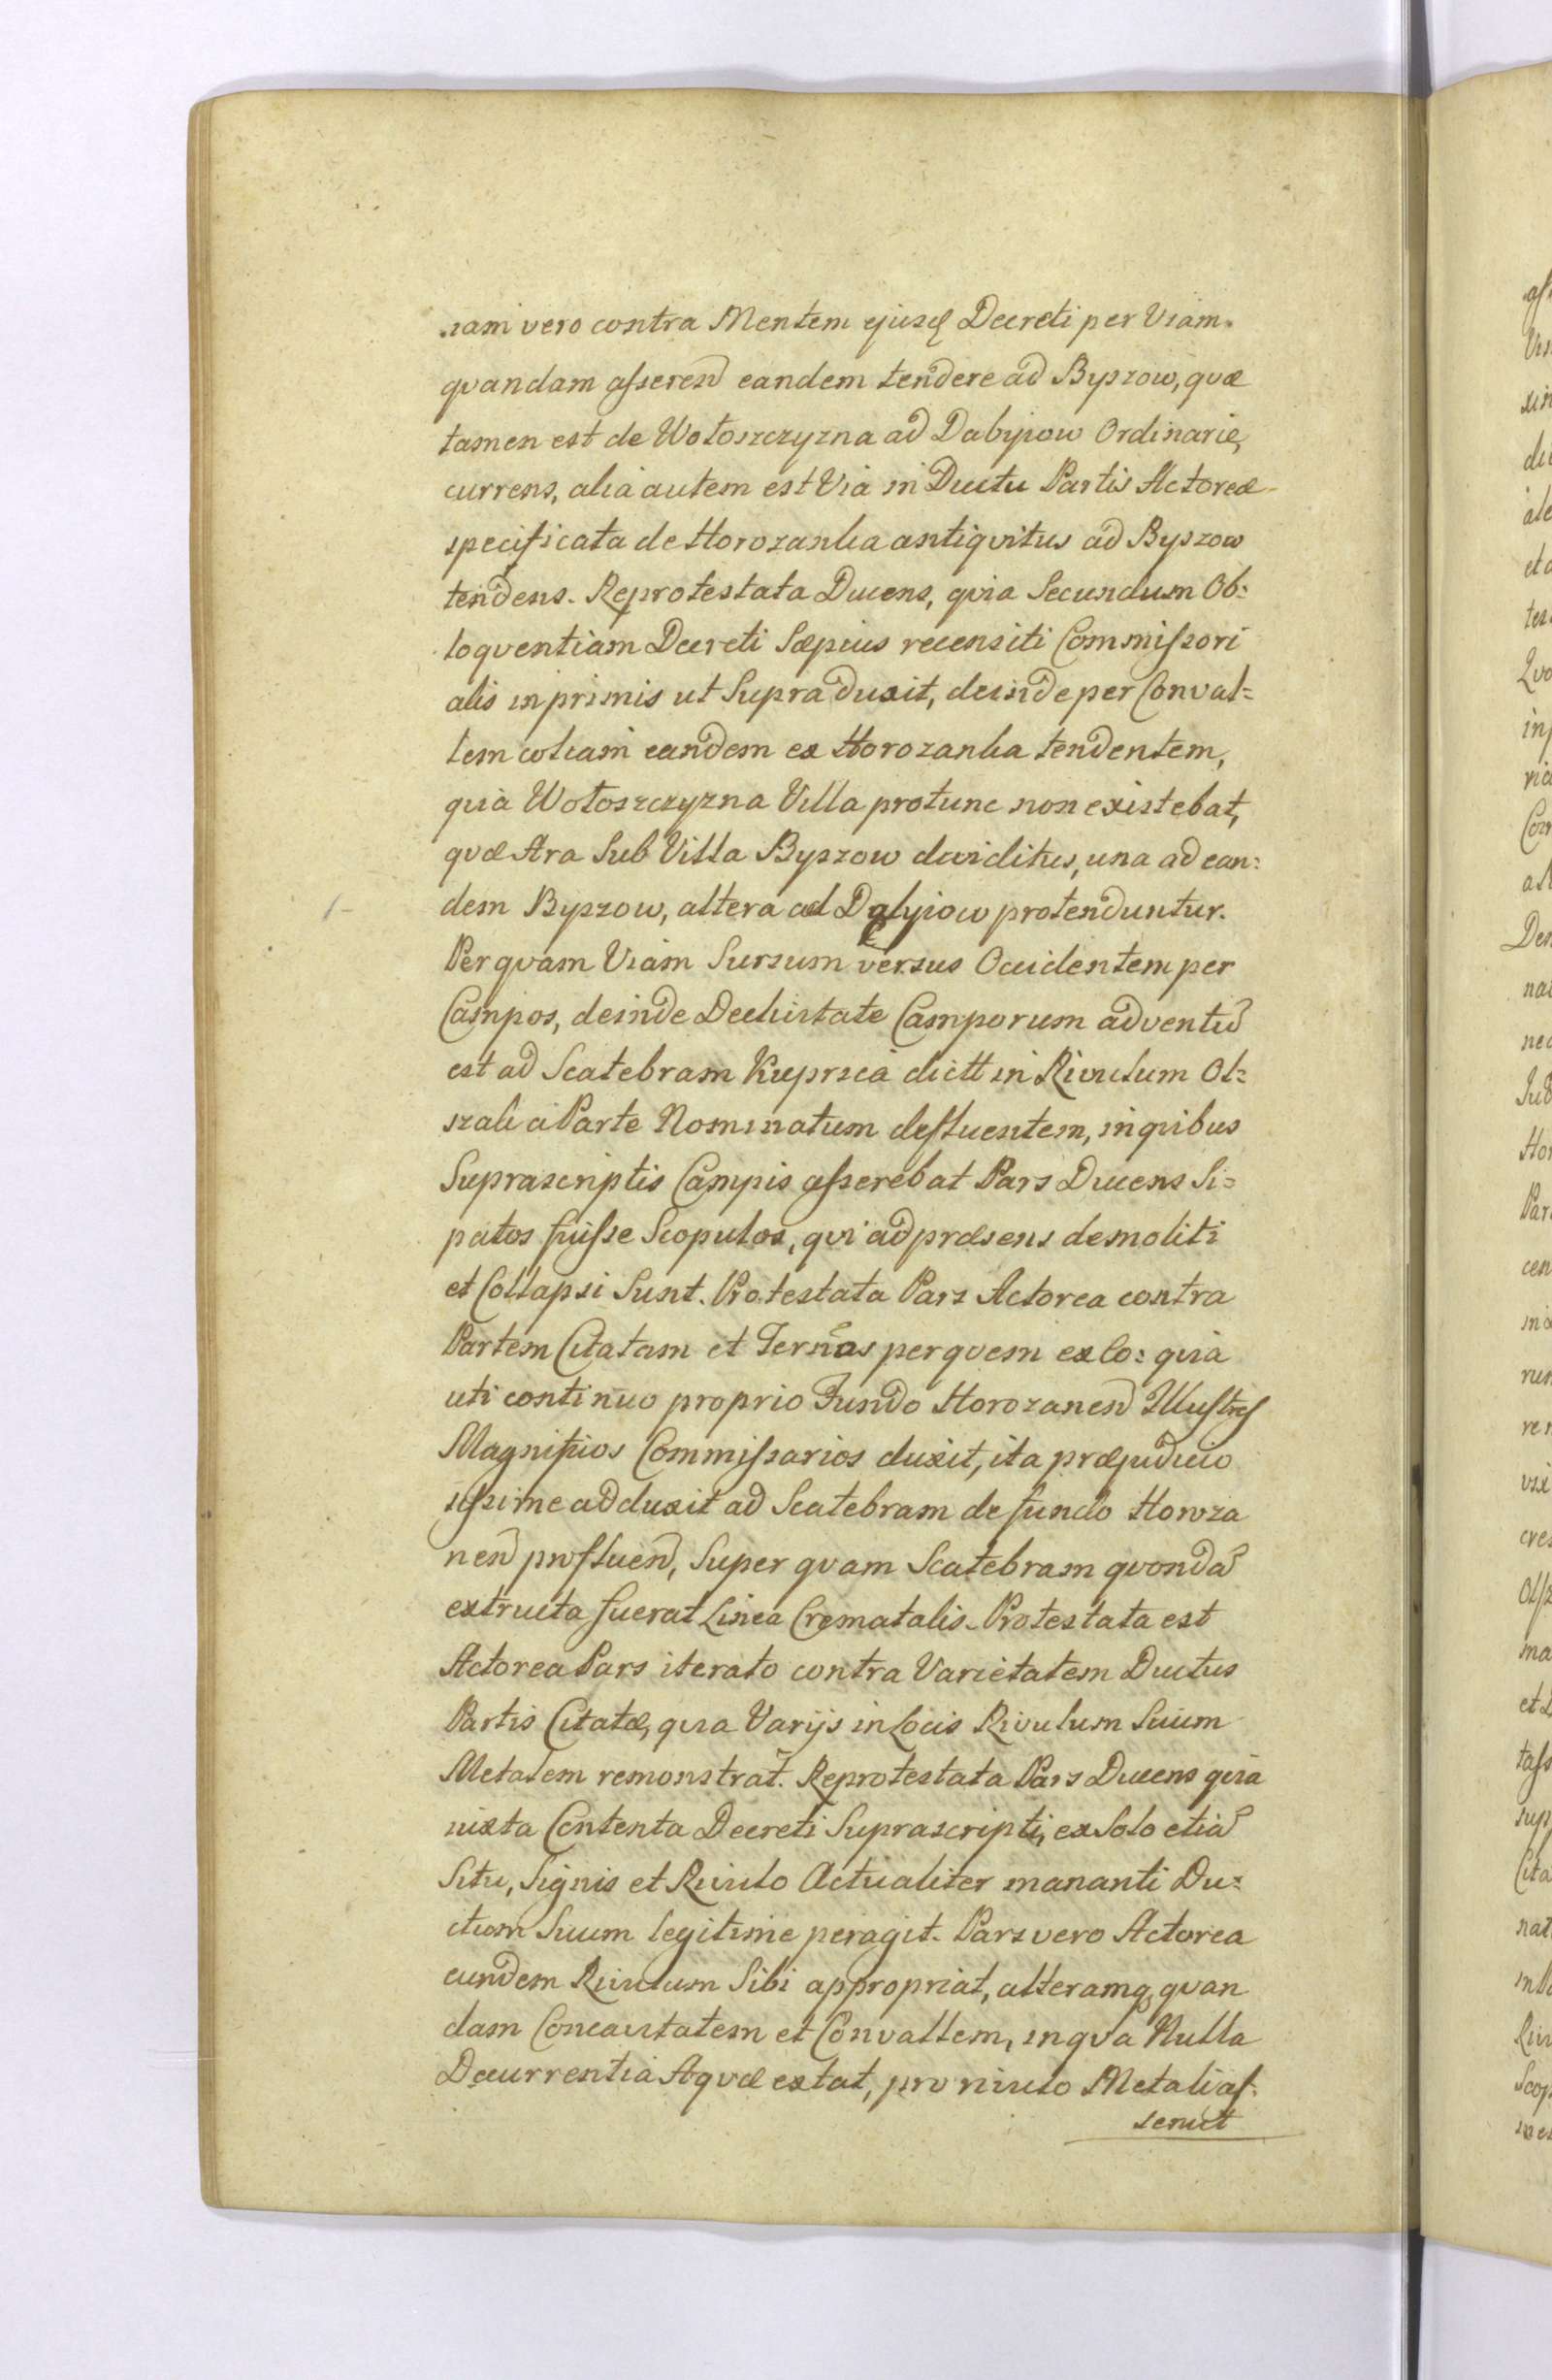 nam vero contra Mentem ejusq Decreti per Viam
quandam asseren̄ eandem tendere ad Byszow, quæ
tamen est de Wołoszczyzna ad Dabijow Ordinarie,
currens, alia autem est Via in Ductu Partis Actoreæ
specificata de Horozanka antiquitus ad Byszow
tendens. Reprotestata Ducens, quia Secundum Ob:
loquentiam Decreti Sæpius recensiti Commissori
alis in primis ut Supra duxit, deinde per Conval=
lem eandem ex Horozanka tendentem,
quia Wołoszczyzna Villa protunc non existebat,
quæ Sub Villa Byszow dividitus, una ad ean:
dem Byszow, altera ad protenduntur.
Per quam Viam Sursum versus Occidentem per
Campos, deinde Declivitate Camporum adventū
est ad Scatebram dictt in Rivulum Ol:
szali a Parte Nominatum defluentem, in quibus
Suprascriptis Campis asserebat Pars Ducens Si=
patos fuisse Scopulos, qui ad præsens demoliti
et Collapsi Sunt. Protestata Pars Actorea contra
Partem Citatam et per quem ex Co: quia
uti continuo proprio Fundo Horozanen̄ Illustres
Magnificos Commissarios duxit, ita præjudicio
sissime adduxit ad Scatebram de fundo Horoza
nen̄ profluen̄, Super quam Scatebram quondā
extructa fuerat Linea Crematalis. Protestata est
Actorea Pars iterato contra Varietatem Ductus
Partis Citatæ, quia Varijs in Locis Rivulum Suum
Metalem remonstrat̄. Reprotestata Pars Ducens quia
iuxta Contenta Decreti Suprascripti, ex Solo etiā
Situ, Signis et Rivulo Actualiter mananti Du:
ctum Suum legitime peragit. Pars vero Actorea
eundem Rivulum Sibi appropriat, alteramq quan
dam Concavitatem et Convallem, in qua Nulla
Decurrentia Aquæ extat, pro rivulo Metali as:
seruit